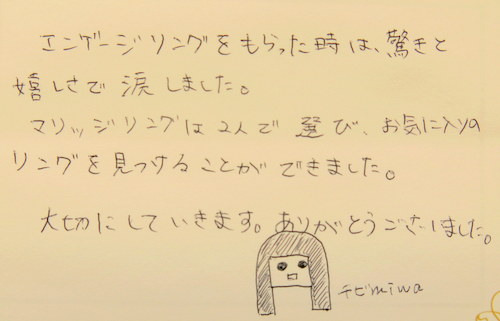 エンゲージリングをもらった時は、驚きと
嬉しさで涙しました。
マリッジリングは2人で選び、お気に入りの
リングを見つけることができました。
大切にしていきます。ありがとうございました。
チビmiwa